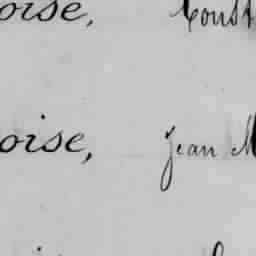 oise, Const
oise, Jean M